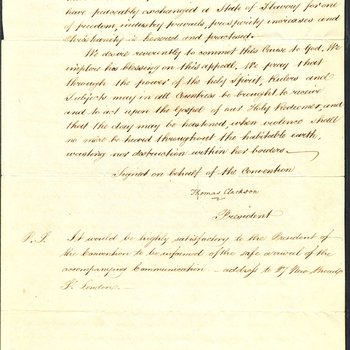 have peaceably exchanged a State of Slavery for one
of freedom, industry prevails, prosperity increases and
Christianity is honored and practised.
We desire reverently to commit this Cause to God, We
implore his blessing on this appeal. We pray that
through the power of the Holy Spirit, Rulers and
Subjects may in all Countries be brought to receive
and to act upon the Gospel of our Holy Redeemer, and
that the day may be hastened when violence shall
no more be heard throughout the habitable earth,
wasting nor destruction within her borders.
Signed on behalf of the Convention
Thomas Clarkson
President
P.S. It would be highly satisfactory to the President of
the Convention to be informed of the safe arrival of the
accompanying Communication – address to 27 New Broad
St. London.